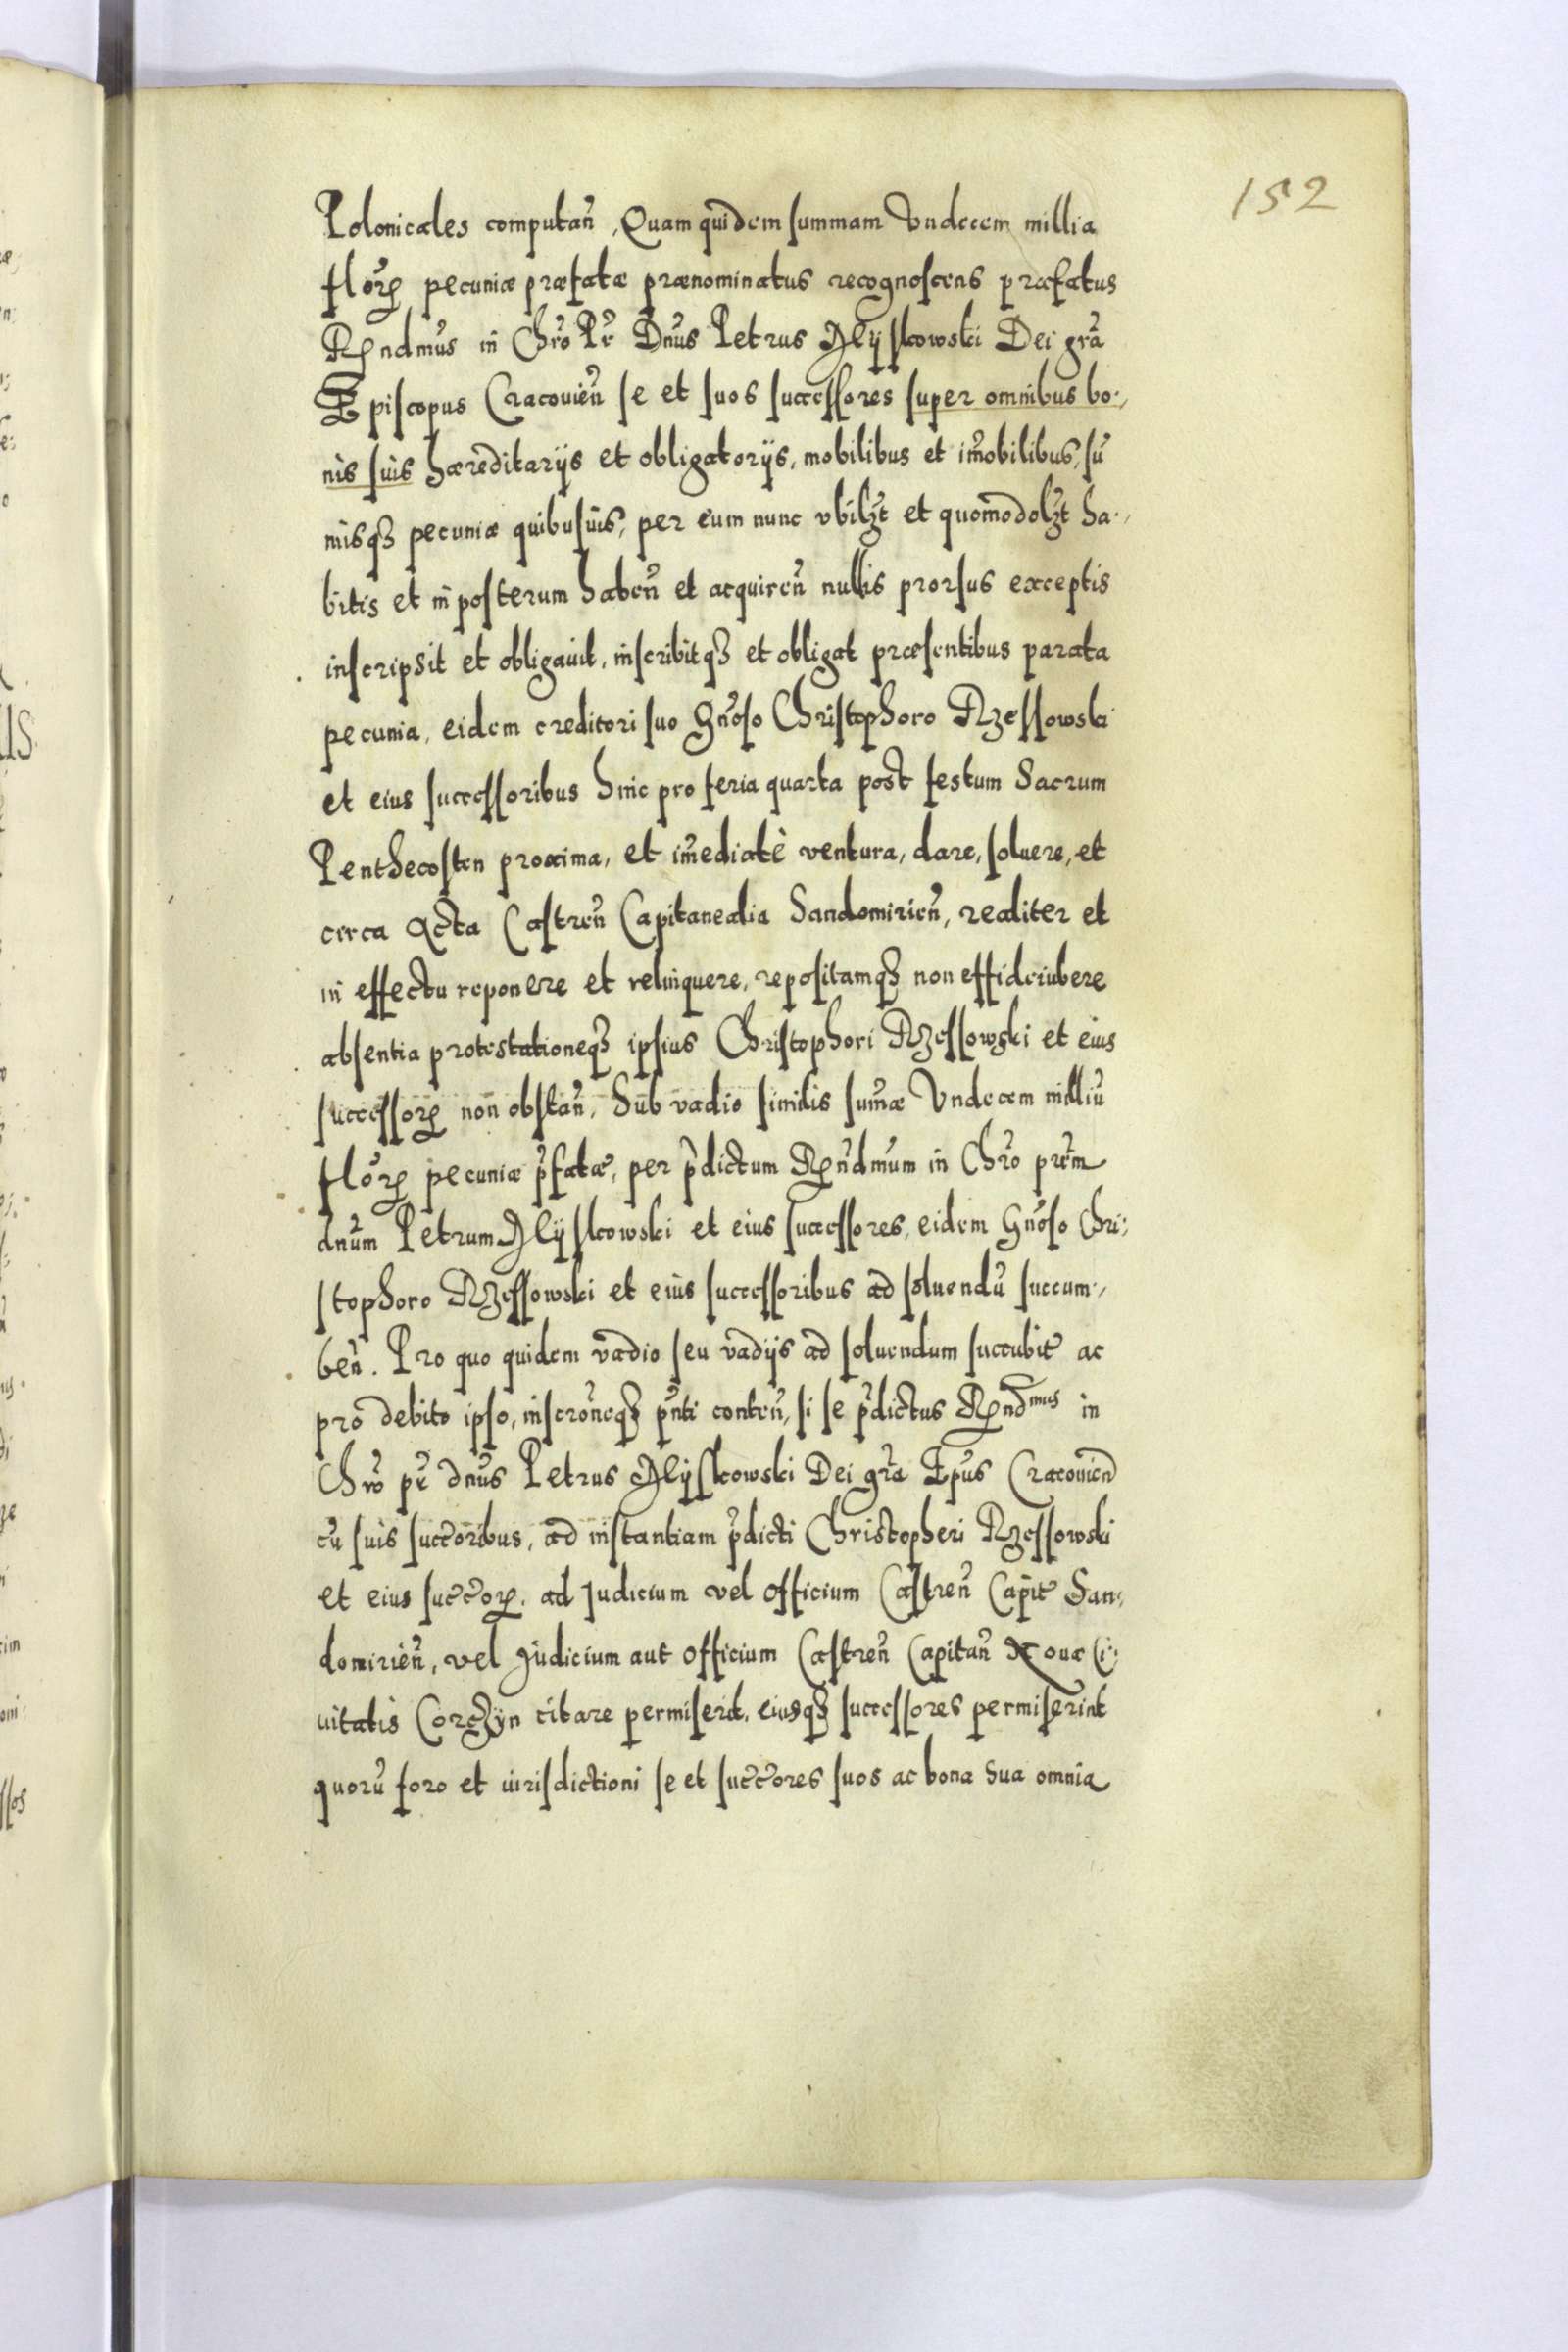 152
Polonicales computan̄, Quam quidem summam Vndecem millia
florꝝ pecuniæ præfatæ prænominatus recognoscens præfatus
Rꝫndmus in Chr̄o Pr̄ Dn̄us Petrus Mÿskowski Dei gr̄a
Episcopus Cracouien̄ se et suos successores super omnibus bo-
nis suis hæreditarijs et obligatorijs, mobilibus et im̄obilibus, sū
misqꝫ pecuniæ quibusuis, per eum nunc vbilꝫt et quomodolꝫt ha-
bitis et in posterum haben̄ et acquiren̄ nullis prorsus exceptis
inscripsit et obligauit, inscribitqꝫ et obligat præsentibus parata
pecunia, eidem creditori suo Gn̄oso Christophoro Rzessowski
et eius successoribus hinc pro feria quarta post festum Sacrum
Penthecosten proxima, et im̄ediatè ventura, dare, soluere, et
circa Acta Castren̄ Capitanealia Sandomirien̄, realiter et
in effectu reponere et relinquere, repositamqꝫ non effideiubere
absentia protestationeqꝫ ipsius Christophori Rzessowski et eius
successorꝝ non obstan̄. Sub vadio similis sum̄æ Vndecem milliū
florꝝ pecuniæ p̄fatæ, per p̄dictum Rꝫn̄dmum in Chr̄o pr̄em
dn̄um Petrum Mÿskowski et eius successores, eidem Gn̄oso Chri-
stophoro Rzessowski et eius successoribus ad soluendū succum-
ben̄. Pro quo quidem vadio seu vadijs ad soluendum succubit̄ ac
pro debito ipso, inscrōneqꝫ p̄nti conten̄, si se p̄dictus Rꝫndmus in
Chr̄o pr̄ dn̄us Petrus Mÿskowski Dei gr̄a Ep̄us Cracouien̄
cū suis succ̄oribus, ad instantiam p̄dicti Christopheri Rzessowski
et eius succ̄corꝝ. ad Judicium vel Officium Castren̄ Capit̄ San-
domirien̄, vel Judicium aut Officium Castren̄ Capitan̄ Nouæ Ci-
uitatis Corczÿn citare permiserit, eiusqꝫ successores permiserint
quorū foro et iurisdictioni se et succ̄cores suos ac bona sua omnia